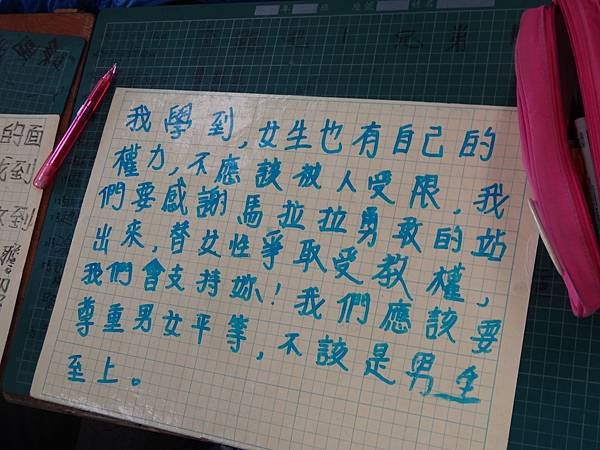 我學到，女生也有自己的
權力，不應該被人受限，我
們要感謝馬拉拉勇敢的站
出來，替女性爭取受教權，
我們會支持妳！我們應該要
尊重男女平等，不該是男生
至上。
的面
找到
到